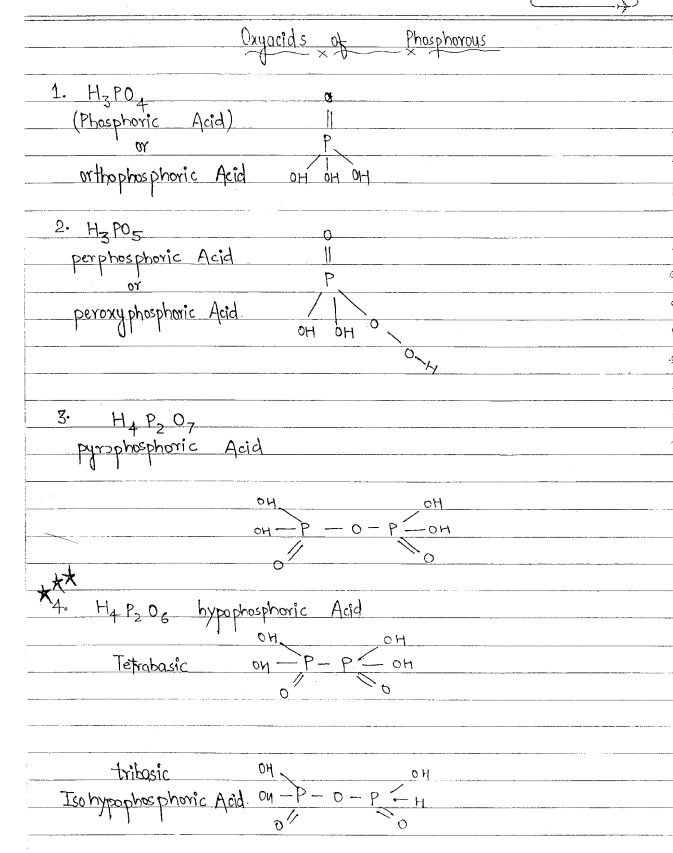 Oxyacids of Phosphorous
1. H3PO4
(Phosphoric Acid)
or
orthophosphoric Acid
O
||
P
OH OH OH
2. H3PO5
perphosphoric Acid
or
peroxyphosphoric Acid.
O
||
P
OH OH O
O-H
3. H4P2O7
pyrophosphoric Acid
OH OH
OH — P — O — P — OH
O O
4. H4P2O6 hypophosphoric Acid
OH OH
Tetrabasic OH — P — P — OH
O O
tribasic OH OH
Isohypophosphoric Acid. OH — P — O — P — H
O O